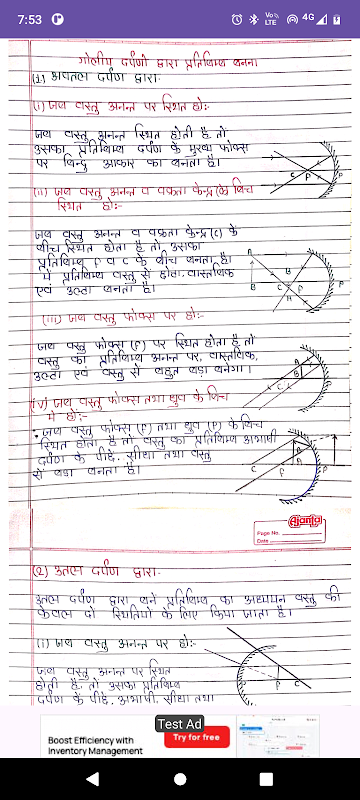 7:53
Vo LTE
4G
गोलीय दर्पणो द्वारा प्रतिबिम्ब बनना
(1) अवतल दर्पण द्वारा.
(i) जब वस्तु अनन्त पर स्थित हो:-
जब वस्तु अनन्त स्थित होती है तो
उसका प्रतिबिम्ब दर्पण के मुख्य फोकस
पर बिन्दु आकार का बनता है।
C F P
(ii) जब वस्तु अनन्त व वक्रता केन्द्र (c) के बिच
स्थित हो:-
जब वस्तु अनन्त व वक्रता केन्द्र (c) के
बीच स्थित होता है तो, उसका
प्रतिबिम्ब F व C के बीच बनता है।
में प्रतिबिम्ब वस्तु से छोटा, वास्तविक
एवं उल्टा बनता है।
A
B C P
(iii) जब वस्तु फोकस पर हो:-
जब वस्तु फोकस (F) पर स्थित होता है तो
वस्तु का प्रतिबिम्ब अनन्त पर, वास्तविक,
उल्टा एवं वस्तु से बहुत बड़ा बनेगा।
(iv) जब वस्तु फोकस तथा ध्रुव के बिच
में हो:-
जब वस्तु फोकस (F) तथा ध्रुव (P) के बिच
स्थित होता है तो वस्तु का प्रतिबिम्ब आभाषी
दर्पण के पीछे, सीधा तथा वस्तु
से बड़ा बनता है।
C F P
Ajanta
Page No.
Date
(2) उतल दर्पण द्वारा.
उतल दर्पण द्वारा बने प्रतिबिम्ब का अध्ययन वस्तु की
केवल दो स्थितियों के लिए किया जाता है।
(i) जब वस्तु अनन्त पर हो:-
जब वस्तु अनन्त पर स्थित
होती है, तो उसका प्रतिबिम्ब
दर्पण के पीछे, आभाषी, सीधा तथा
F C
Test Ad
Boost Efficiency with
Inventory Management
Try for free